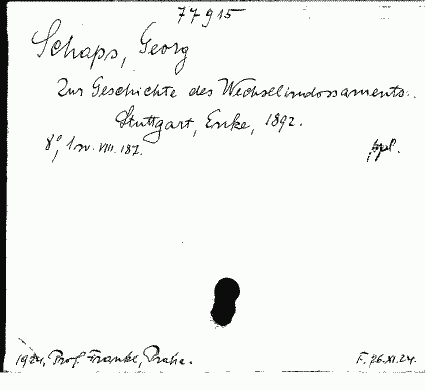 77915
Schaps, Georg
Zur Geschichte des Wechselindossaments.
Stuttgart, Enke, 1892.
8°, VIII. 187.
1924, Prof. Frankl, Praha.
F. 26.XI.24.